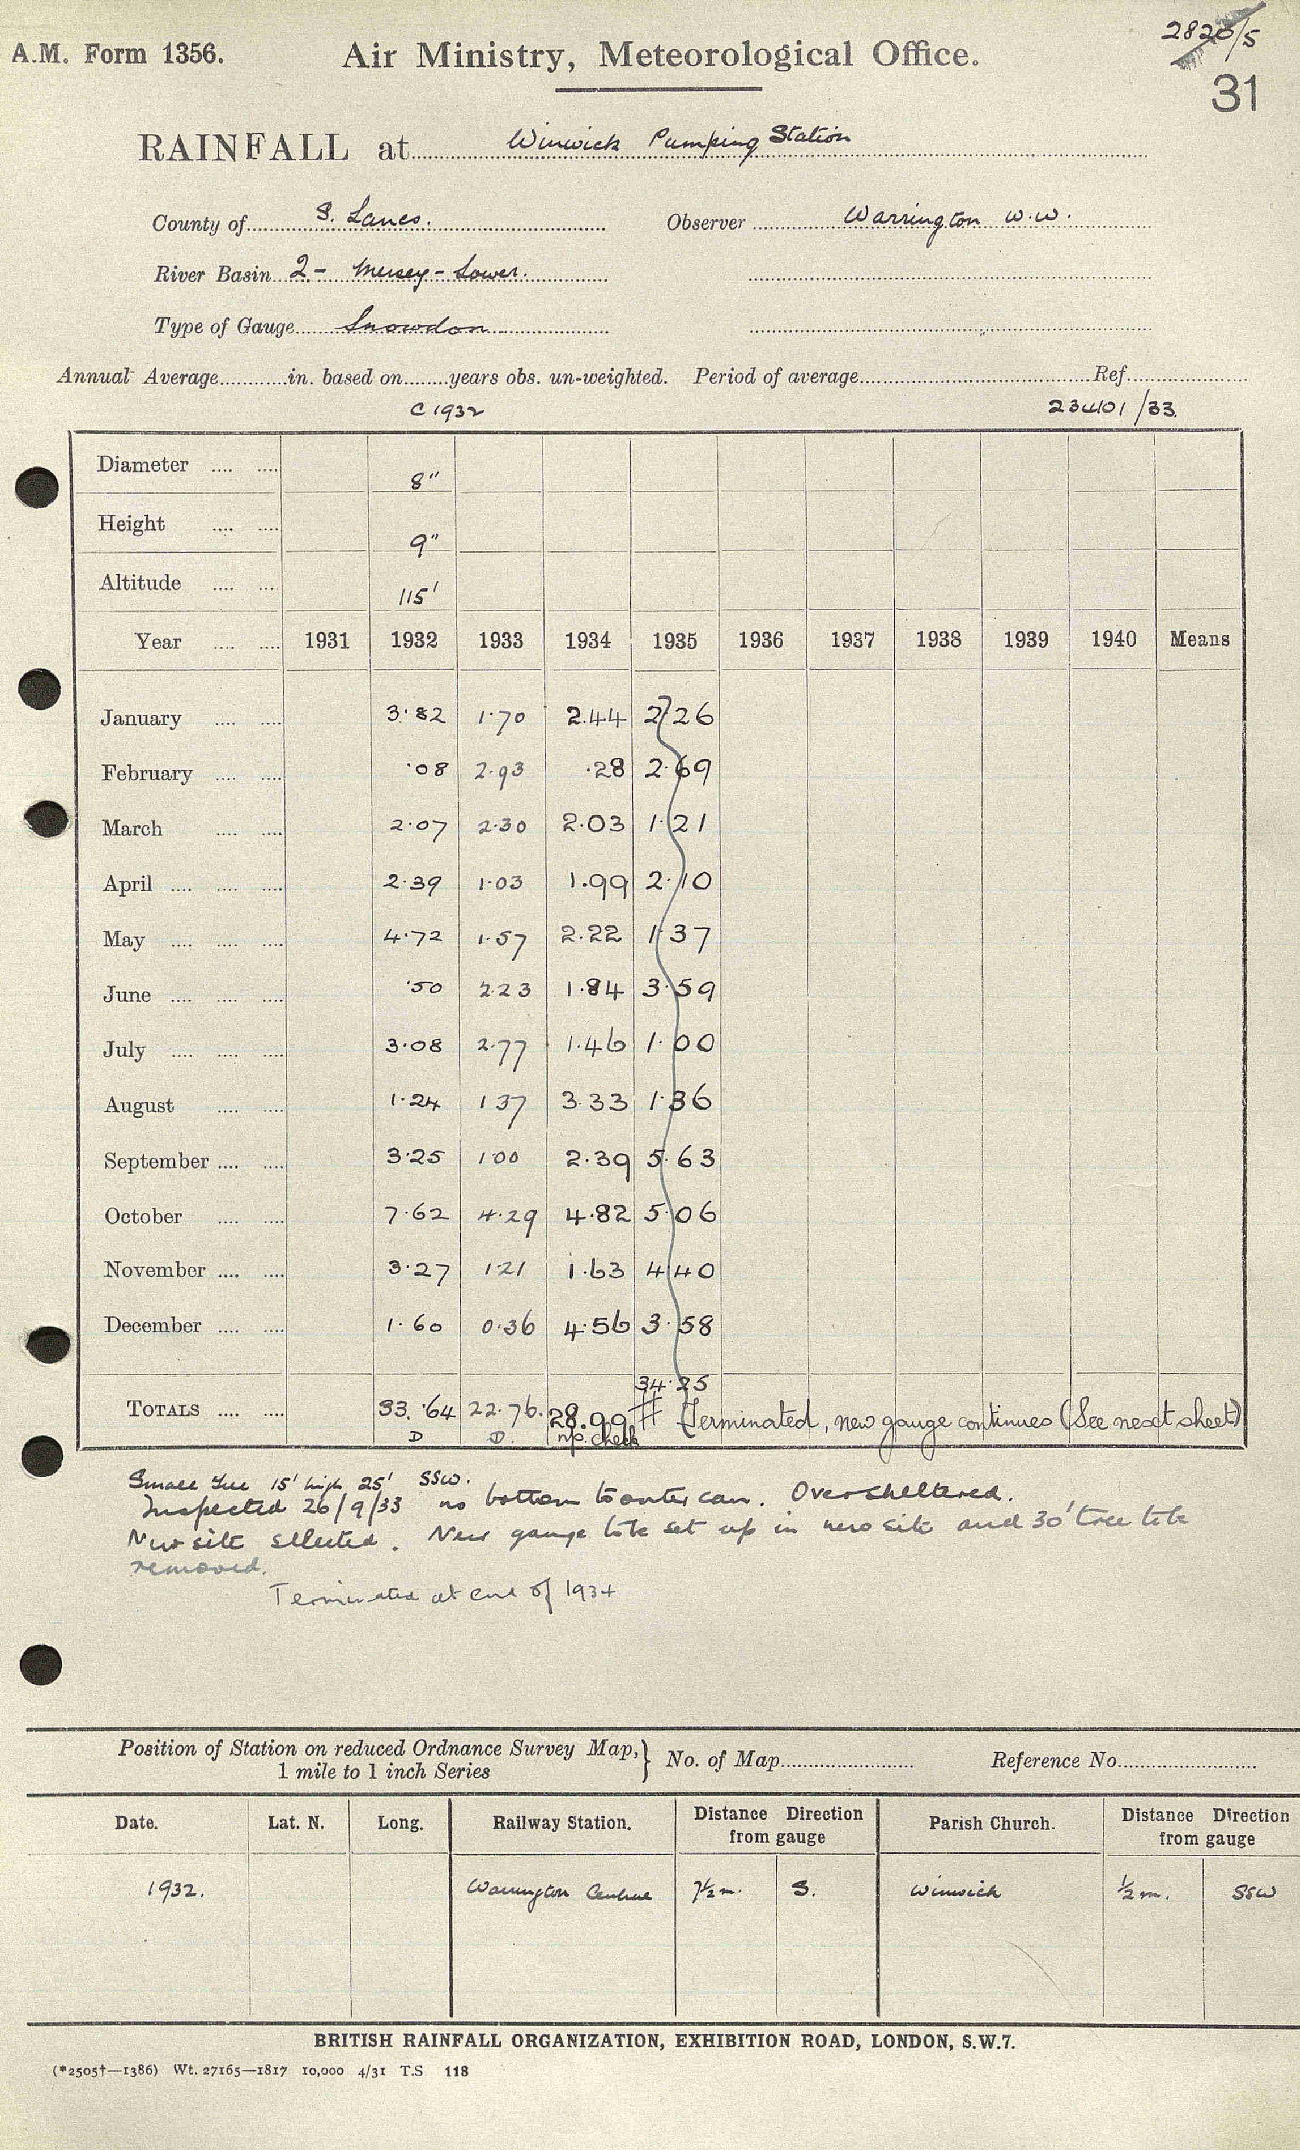 A.M. Form 1356. Air Ministry, Meteorological Office. 2820/5
31
RAINFALL at Winwick Pumping Station
County of S. Lancs. Observer Warrington W.W.
River Basin 2 - Mersey - Lower.
Type of Gauge Snowdon
Annual Average in. based on years obs. un-weighted. Period of average Ref.
C 1932 23401/33.
Diameter .... .... 8"
Height .... .... 9"
Altitude .... .... 115'
Year .... .... 1931 1932 1933 1934 1935 1936 1937 1938 1939 1940 Means
January .... .... 3.82 1.70 2.44 2.26
February .... .... .08 2.93 .28 2.69
March .... .... 2.07 2.30 2.03 1.21
April .... .... .... 2.39 1.03 1.99 2.10
May .... .... .... 4.72 1.57 2.22 1.37
June .... .... .... .50 2.23 1.84 3.59
July .... .... .... 3.08 2.77 1.46 1.00
August .... .... 1.24 1 37 3.33 1.36
September .... .... 3.25 1.00 2.39 5.63
October .... .... 7.62 4.29 4.82 5.06
November .... .... 3.27 1.21 1.63 4.40
December .... .... 1.60 0.36 4.56 3.58
34.25
TOTALS .... .... 33.64 22.76. 28.99 # Terminated, new gauge continues (See next sheet)
D D. no check
Small tree 15' high 25' SSW.
Inspected 26/9/33 no bottom to outer can. Over sheltered.
New site selected. New gauge to be set up in new site and 30' tree to be
removed.
Terminated at end of 1934
Position of Station on reduced Ordnance Survey Map,} No. of Map Reference No.
1 mile to 1 inch Series
Date. Lat. N. Long. Railway Station. Distance Direction from gauge Parish Church. Distance Direction from gauge
1932. Warrington Central 2½ m. S. Winwick ½ m. SSW
BRITISH RAINFALL ORGANIZATION, EXHIBITION ROAD, LONDON, S.W.7.
(*2505†—1386) Wt. 27165—1817 10,000 4/31 T.S 118